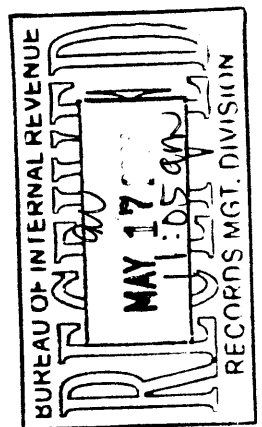 BUREAU OF INTERNAL REVENUE
RECEIVED
MAY 17
11:05 am
RECORDS MGT. DIVISION